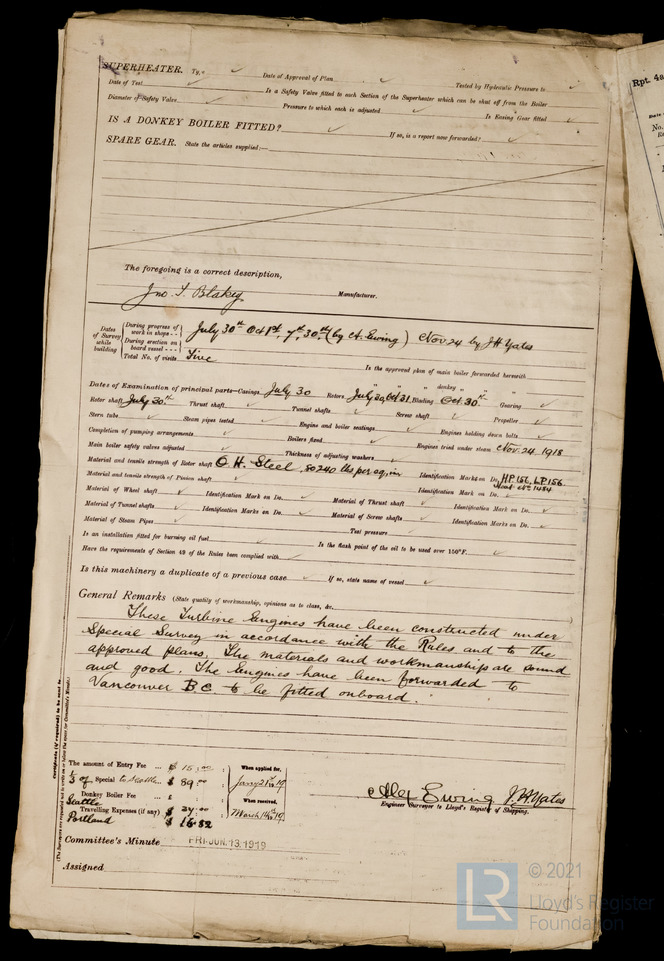 SUPERHEATER. Type ✓ Date of Approval of Plan ✓ Tested by Hydraulic Pressure to ✓
Date of Test ✓ Is a Safety Valve fitted to each Section of the Superheater which can be shut off from the Boiler ✓
Diameter of Safety Valve ✓ Pressure to which each is adjusted ✓ Is Easing Gear fitted ✓
IS A DONKEY BOILER FITTED? ✓ If so, is a report now forwarded? ✓
SPARE GEAR. State the articles supplied:—
The foregoing is a correct description,
Jno. T. Blakey Manufacturer.
Dates of Survey while building
During progress of work in shops -- July 30th Oct 1st, 7th, 30th (by A. Ewing) Nov 24 by JH Yates
During erection on board vessel ---
Total No. of visits Five
Is the approved plan of main boiler forwarded herewith
" " " donkey " " "
Dates of Examination of principal parts—Casings July 30 Rotors July 30, Oct 31 Blading Oct 30th Gearing ✓
Rotor shaft July 30th Thrust shaft ✓ Tunnel shafts ✓ Screw shaft ✓ Propeller ✓
Stern tube ✓ Steam pipes tested ✓ Engine and boiler seatings ✓ Engines holding down bolts ✓
Completion of pumping arrangements ✓ Boilers fixed ✓ Engines tried under steam Nov. 24 1918
Main boiler safety valves adjusted ✓ Thickness of adjusting washers ✓
Material and tensile strength of Rotor shaft O. H. Steel, 80240 lbs per sq. in Identification Marks on Do. HP 156, LP 156
Material and tensile strength of Pinion shaft ✓ Identification Marks on Do. 1484
Material of Wheel shaft ✓ Identification Mark on Do. ✓ Material of Thrust shaft ✓ Identification Mark on Do. ✓
Material of Tunnel shafts ✓ Identification Marks on Do. ✓ Material of Screw shafts ✓ Identification Marks on Do. ✓
Material of Steam Pipes ✓ Test pressure ✓
Is an installation fitted for burning oil fuel ✓ Is the flash point of the oil to be used over 150°F. ✓
Have the requirements of Section 49 of the Rules been complied with ✓
Is this machinery a duplicate of a previous case ✓ If so, state name of vessel ✓
General Remarks (State quality of workmanship, opinions as to class, &c.
These Turbine Engines have been constructed under
Special Survey in accordance with the Rules and to the
approved plans. The materials and workmanship are sound
and good. The Engines have been forwarded to
Vancouver B.C. to be fitted onboard.
Certificate (if required) to be sent to
(The Surveyors are requested not to write on or below the space for Committee's Minute.)
The amount of Entry Fee ... $ 15.00 : When applied for,
Special to Seattle $ 89.00 : Jany 21st 19
Donkey Boiler Fee ... $ : When received,
Seattle
Travelling Expenses (if any) $ : March 19
Portland $ 16.82
Alex Ewing J.H. Yates
Engineer Surveyor to Lloyd's Register of Shipping.
Committee's Minute FRI. JUN. 13. 1919
Assigned
Rpt. 4a
No.
© 2021
Lloyd's Register
Foundation
LR